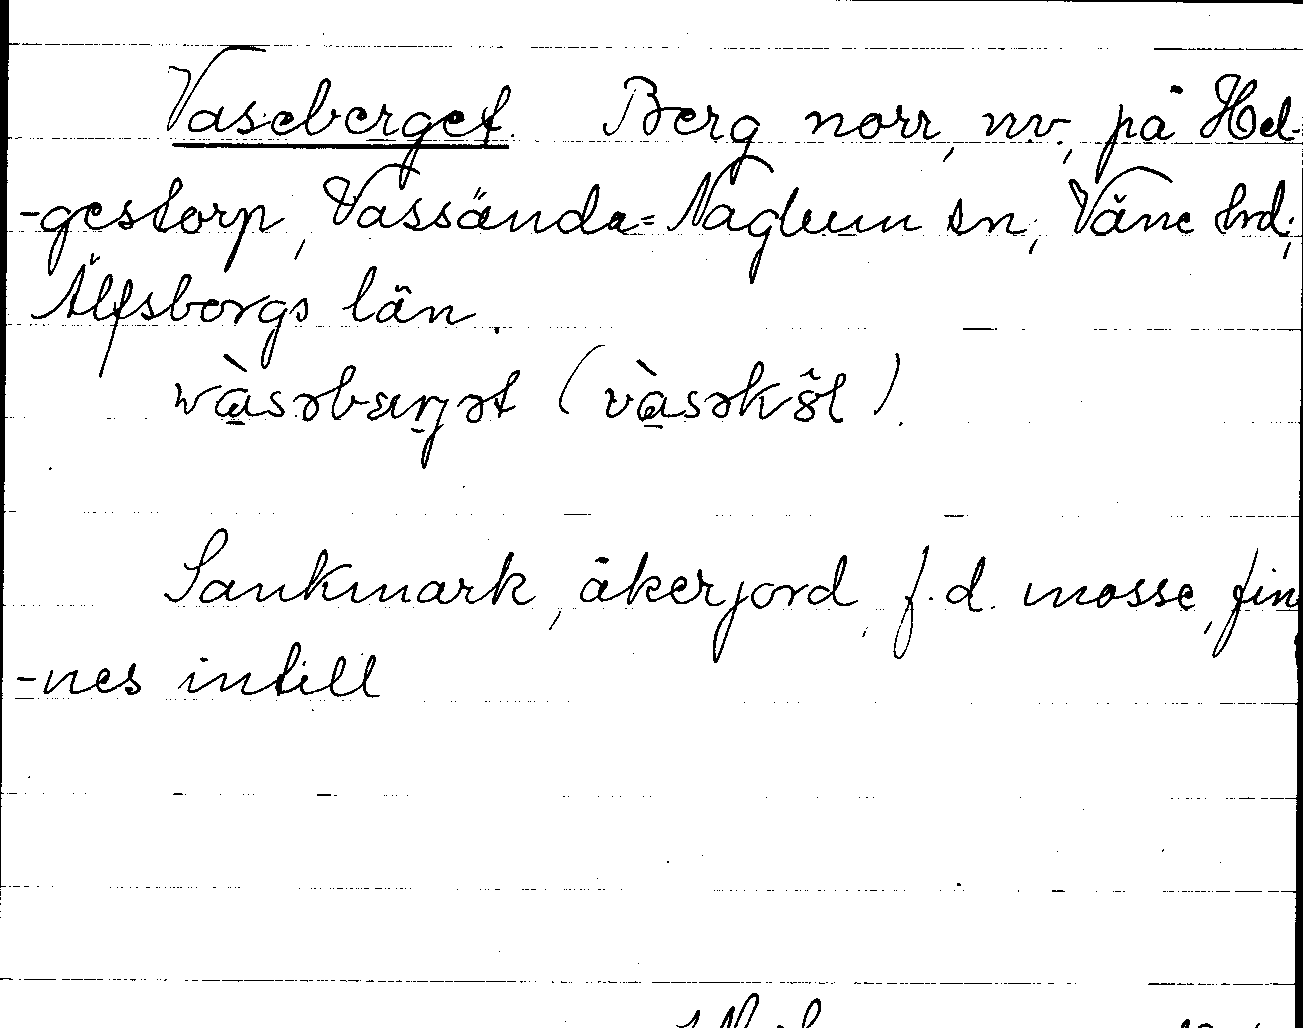 Vaseberget. Berg norr, nv., på Hel-
-gestorp, Vassända=Naglum sn, Väne hrd;
Älfsborgs län.
Sankmark, åkerjord, f.d. mosse, fin
-nes intill